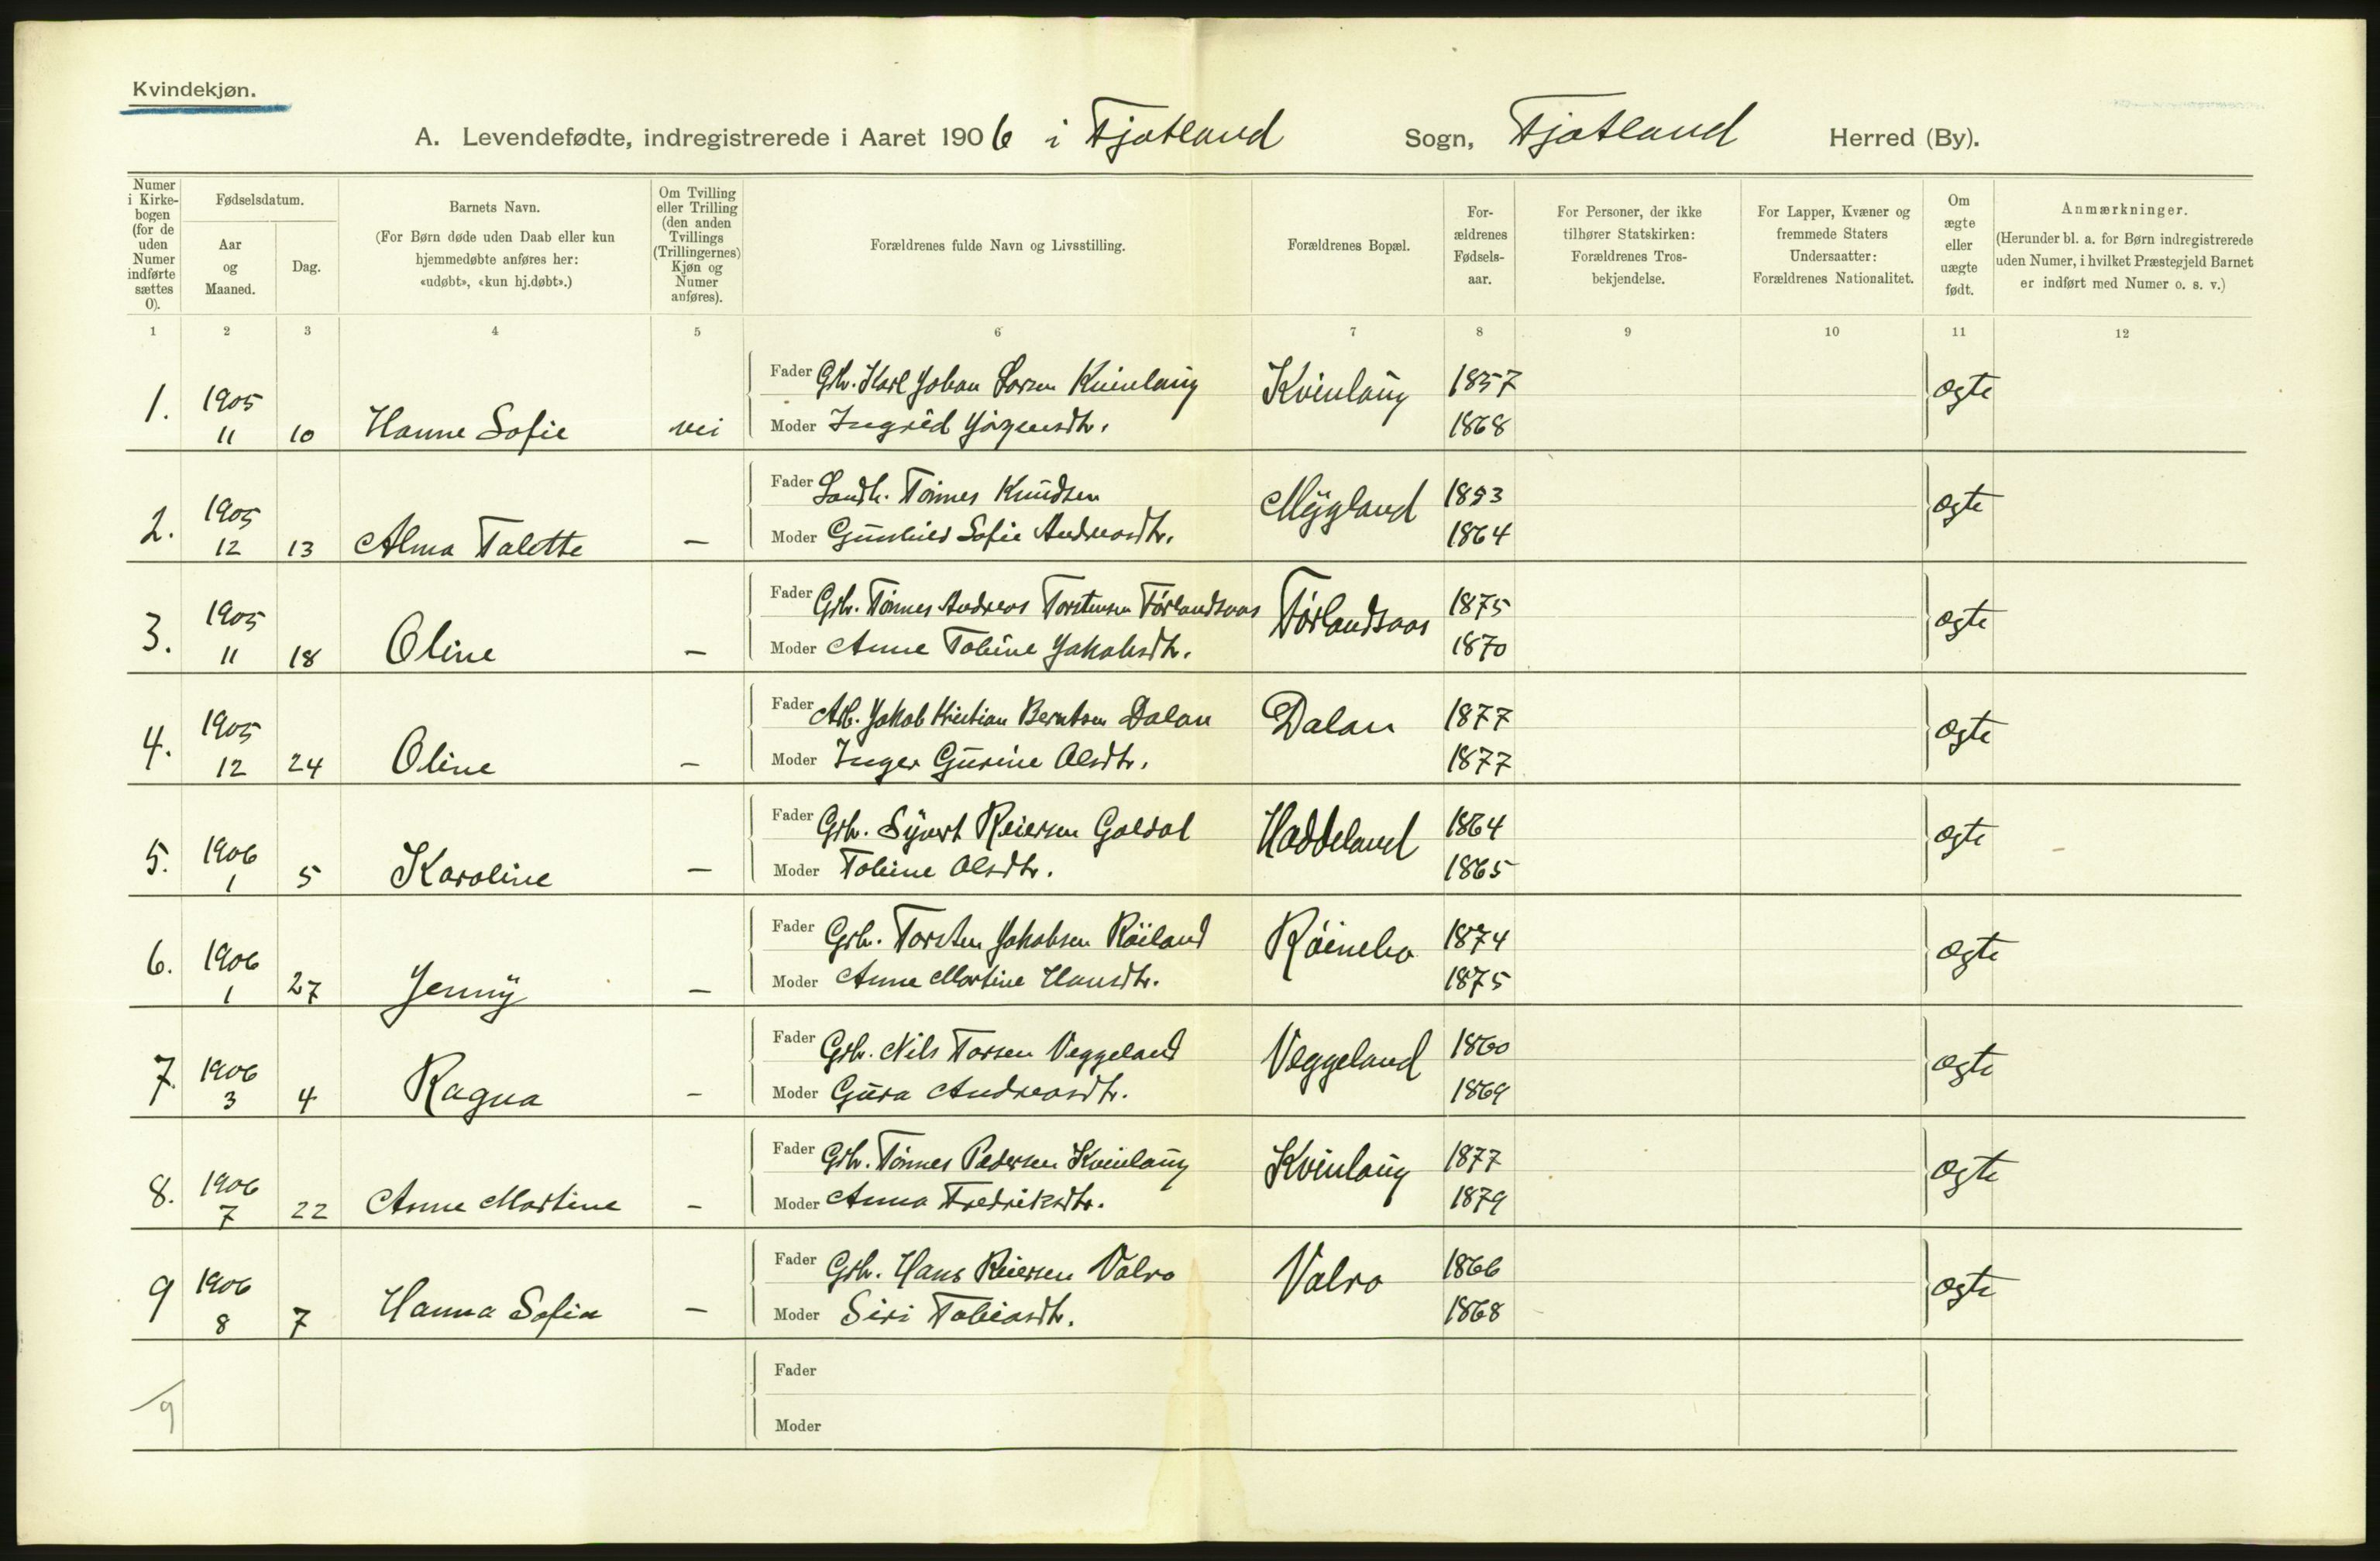 Kvindekjøn.
A. Levendefødte, indregistrerede i Aaret 1906 i Fjotland Sogn, Fjotland Herred (By).
Numer i Kirke- bogen (for de uden Numer indførte sættes 0).
Fødselsdatum.
Aar og Maaned.
Dag.
Barnets Navn.
(For Børn døde uden Daab eller kun hjemmedøbte anføres her: «udøbt», «kun hj.døbt».)
Om Tvilling eller Trilling (den anden Tvillings (Trillingernes) Kjøn og Numer anføres).
Forældrenes fulde Navn og Livsstilling.
Forældrenes Bopæl.
For- ældrenes Fødsels- aar.
For Personer, der ikke tilhører Statskirken: Forældrenes Tros- bekjendelse.
For Lapper, Kvæner og fremmede Staters Undersaatter: Forældrenes Nationalitet.
Om ægte eller uægte født.
Anmærkninger.
(Herunder bl. a. for Børn indregistrerede uden Numer, i hvilket Præstegjeld Barnet er indført med Numer o. s. v.)
1 2 3 4 5 6 7 8 9 10 11 12
1. 1905 Fader Gbr. Karl Johan Larsen Kvinlaug Kvinlaug 1857 ægte
11 10 Hanne Sofie nei Moder Ingrid Jørgensdtr. 1868
2. 1905 Fader Landh. Tønnes Knudsen Mygland 1853 ægte
12 13 Alma Talette — Moder Gunhild Sofie Andreasdtr. 1864
3. 1905 Fader Gbr. Tønnes Andreas Torstensen Førlandsaas Førlandsaas 1875 ægte
11 18 Oline — Moder Anne Tobine Jakobsdtr. 1870
4. 1905 Fader Arb. Jakob Kristian Berntsen Dalan Dalan 1877 ægte
12 24 Oline — Moder Inger Gurine Olsdtr. 1877
5. 1906 Fader Gbr. Syvert Reiersen Galdal Haddeland 1864 ægte
1 5 Karoline — Moder Tobine Olsdtr. 1865
6. 1906 Fader Gbr. Torsten Jakobsen Røiland Røinebo 1874 ægte
1 27 Jenny — Moder Anne Martine Hansdtr. 1875
7. 1906 Fader Gbr. Nils Tarsen Veggeland Veggeland 1860 ægte
3 4 Ragna - Moder Gura Andreasdtr. 1869
8. 1906 Fader Gbr. Tønnes Pedersen Kvinlaug Kvinlaug 1877 ægte
7 22 Anne Martine - Moder Anna Fredriksdtr. 1879
9 1906 Fader Gbr. Hans Reiersen Valro Valro 1866 ægte
8 7 Hanna Sofie — Moder Siri Tobiasdtr. 1868
Fader
9 Moder